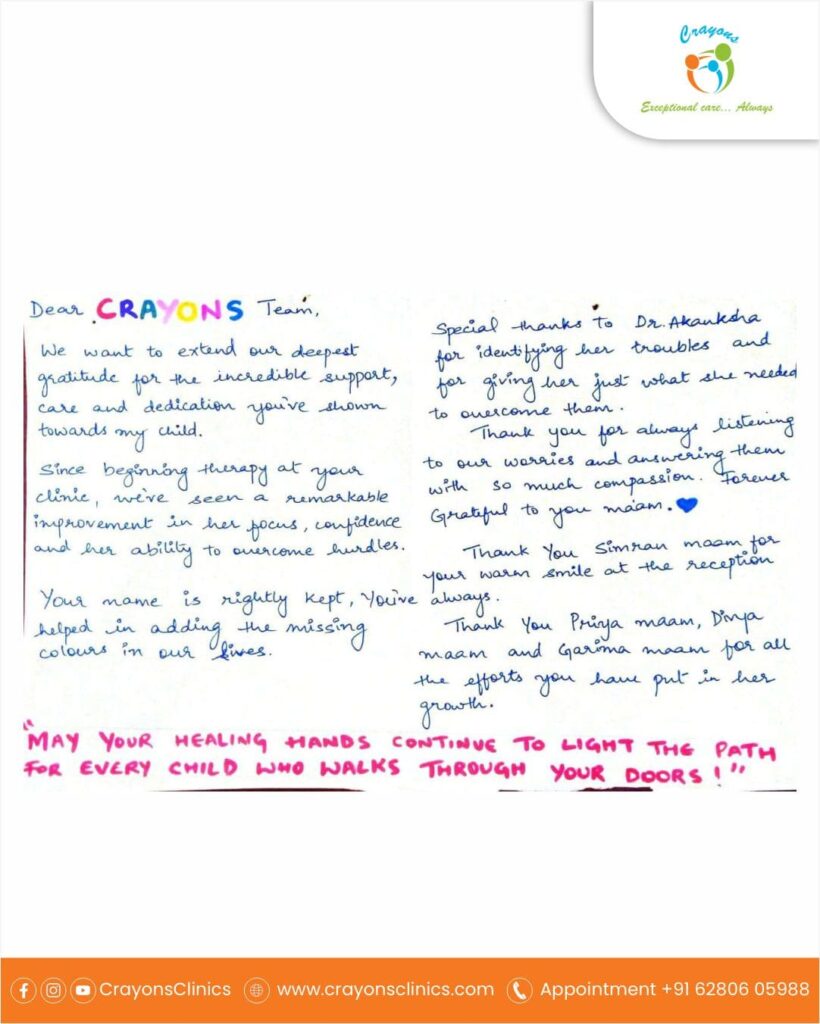 Crayons
Exceptional care... Always
Dear CRAYONS Team,
We want to extend our deepest
gratitude for the incredible support,
care and dedication you've shown
towards my child.
Since beginning therapy at your
clinic, we've seen a remarkable
improvement in her focus, confidence
and her ability to overcome hurdles.
Your name is rightly kept, You've
helped in adding the missing
colours in our lives.
Special thanks to Dr. Akanksha
for identifying her troubles and
for giving her just what she needed
to overcome them.
Thank you for always listening
to our worries and answering them
with so much compassion. Forever
Grateful to you ma'am.
Thank You Simran maam for
your warm smile at the reception
always.
Thank You Priya maam, Divya
maam and Garima maam for all
the efforts you have put in her
growth.
"MAY YOUR HEALING HANDS CONTINUE TO LIGHT THE PATH
FOR EVERY CHILD WHO WALKS THROUGH YOUR DOORS!"
CrayonsClinics www.crayonsclinics.com Appointment +91 62806 05988